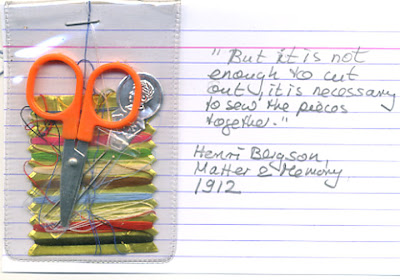 "But it is not
enough to cut
out, it is necessary
to sew the pieces
together."
Henri Bergson,
Matter & Memory
1912